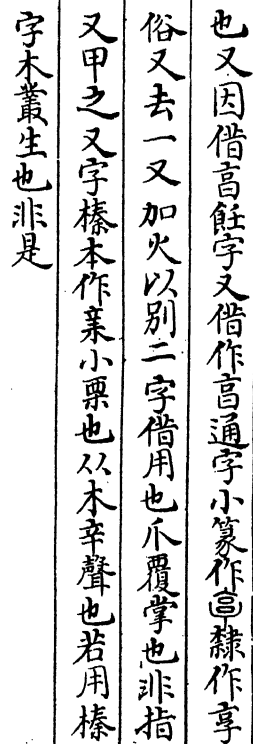 也又因借亯飪字又借作亯通字小篆作亯隸作享
俗又去一又加火以别二字借用也爪覆掌也非指
又甲之又字榛本作亲小栗也从木辛聲也若用榛
字木叢生也非是